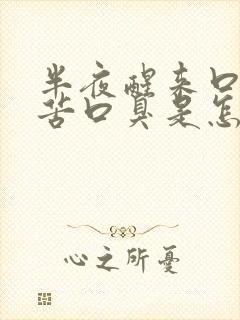 半夜醒来口
苦口臭是怎
心之所憂